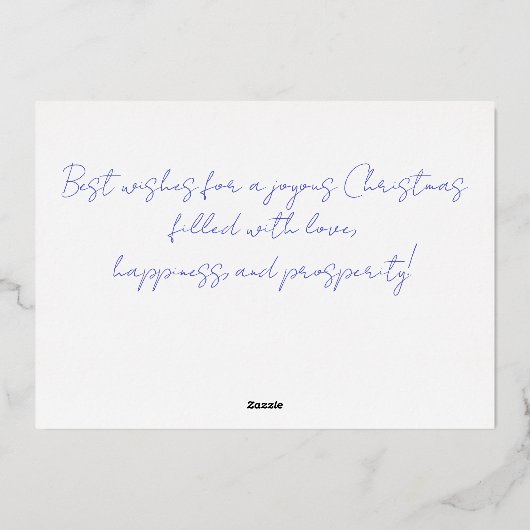 Best wishes for a joyous Christmas
filled with love,
happiness, and prosperity!
Zazzle